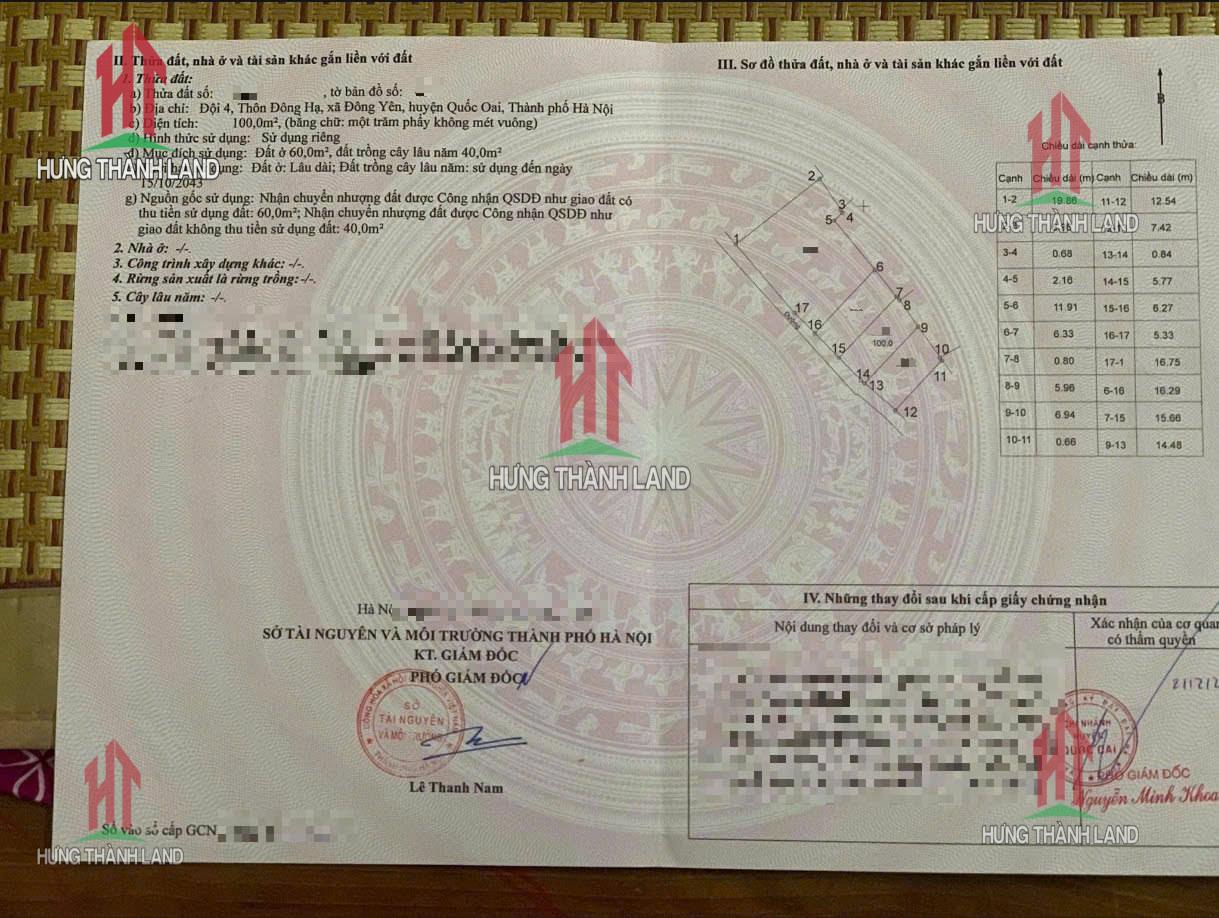 II. Thửa đất, nhà ở và tài sản khác gắn liền với đất
1. Thửa đất:
a) Thửa đất số: , tờ bản đồ số:
b) Địa chỉ: Đội 4, Thôn Đông Hạ, xã Đông Yên, huyện Quốc Oai, Thành phố Hà Nội
c) Diện tích: 100,0m², (bằng chữ: một trăm phẩy không mét vuông)
d) Hình thức sử dụng: Sử dụng riêng
đ) Mục đích sử dụng: Đất ở 60,0m², đất trồng cây lâu năm 40,0m²
dụng: Đất ở: Lâu dài; Đất trồng cây lâu năm: sử dụng đến ngày
15/10/2043
g) Nguồn gốc sử dụng: Nhận chuyển nhượng đất được Công nhận QSDĐ như giao đất có
thu tiền sử dụng đất: 60,0m²; Nhận chuyển nhượng đất được Công nhận QSDĐ như
giao đất không thu tiền sử dụng đất: 40,0m²
2. Nhà ở: -/-.
3. Công trình xây dựng khác: -/-.
4. Rừng sản xuất là rừng trồng: -/-.
5. Cây lâu năm: -/-.
HƯNG THÀNH LAND
HƯNG THÀNH LAND
Hà Nộ
SỞ TÀI NGUYÊN VÀ MÔI TRƯỜNG THÀNH PHỐ HÀ NỘI
KT. GIÁM ĐỐC
PHÓ GIÁM ĐỐC
SỞ
TÀI NGUYÊN
VÀ MÔI TRƯỜNG
Lê Thanh Nam
Số vào sổ cấp GCN
HƯNG THÀNH LAND
III. Sơ đồ thửa đất, nhà ở và tài sản khác gắn liền với đất
B
Chiều dài cạnh thửa:
Cạnh Chiều dài (m) Cạnh Chiều dài (m)
1-2 19.86 11-12 12.54
7.42
3-4 0.68 13-14 0.84
4-5 2.16 14-15 5.77
5-6 11.91 15-16 6.27
6-7 6.33 16-17 5.33
7-8 0.80 17-1 16.75
8-9 5.96 6-16 16.29
9-10 6.94 7-15 15.66
10-11 0.66 9-13 14.48
HƯNG THÀNH LAND
2
3
4
5
1
6
7
8
17
Đường
16
9
100.0
15
10
14
13
11
12
IV. Những thay đổi sau khi cấp giấy chứng nhận
Nội dung thay đổi và cơ sở pháp lý
Xác nhận của cơ quan
có thẩm quyền
CHI NHÁNH
HUYỆN
QUỐC OAI
PHÓ GIÁM ĐỐC
Nguyễn Minh Khoa
HƯNG THÀNH LAND